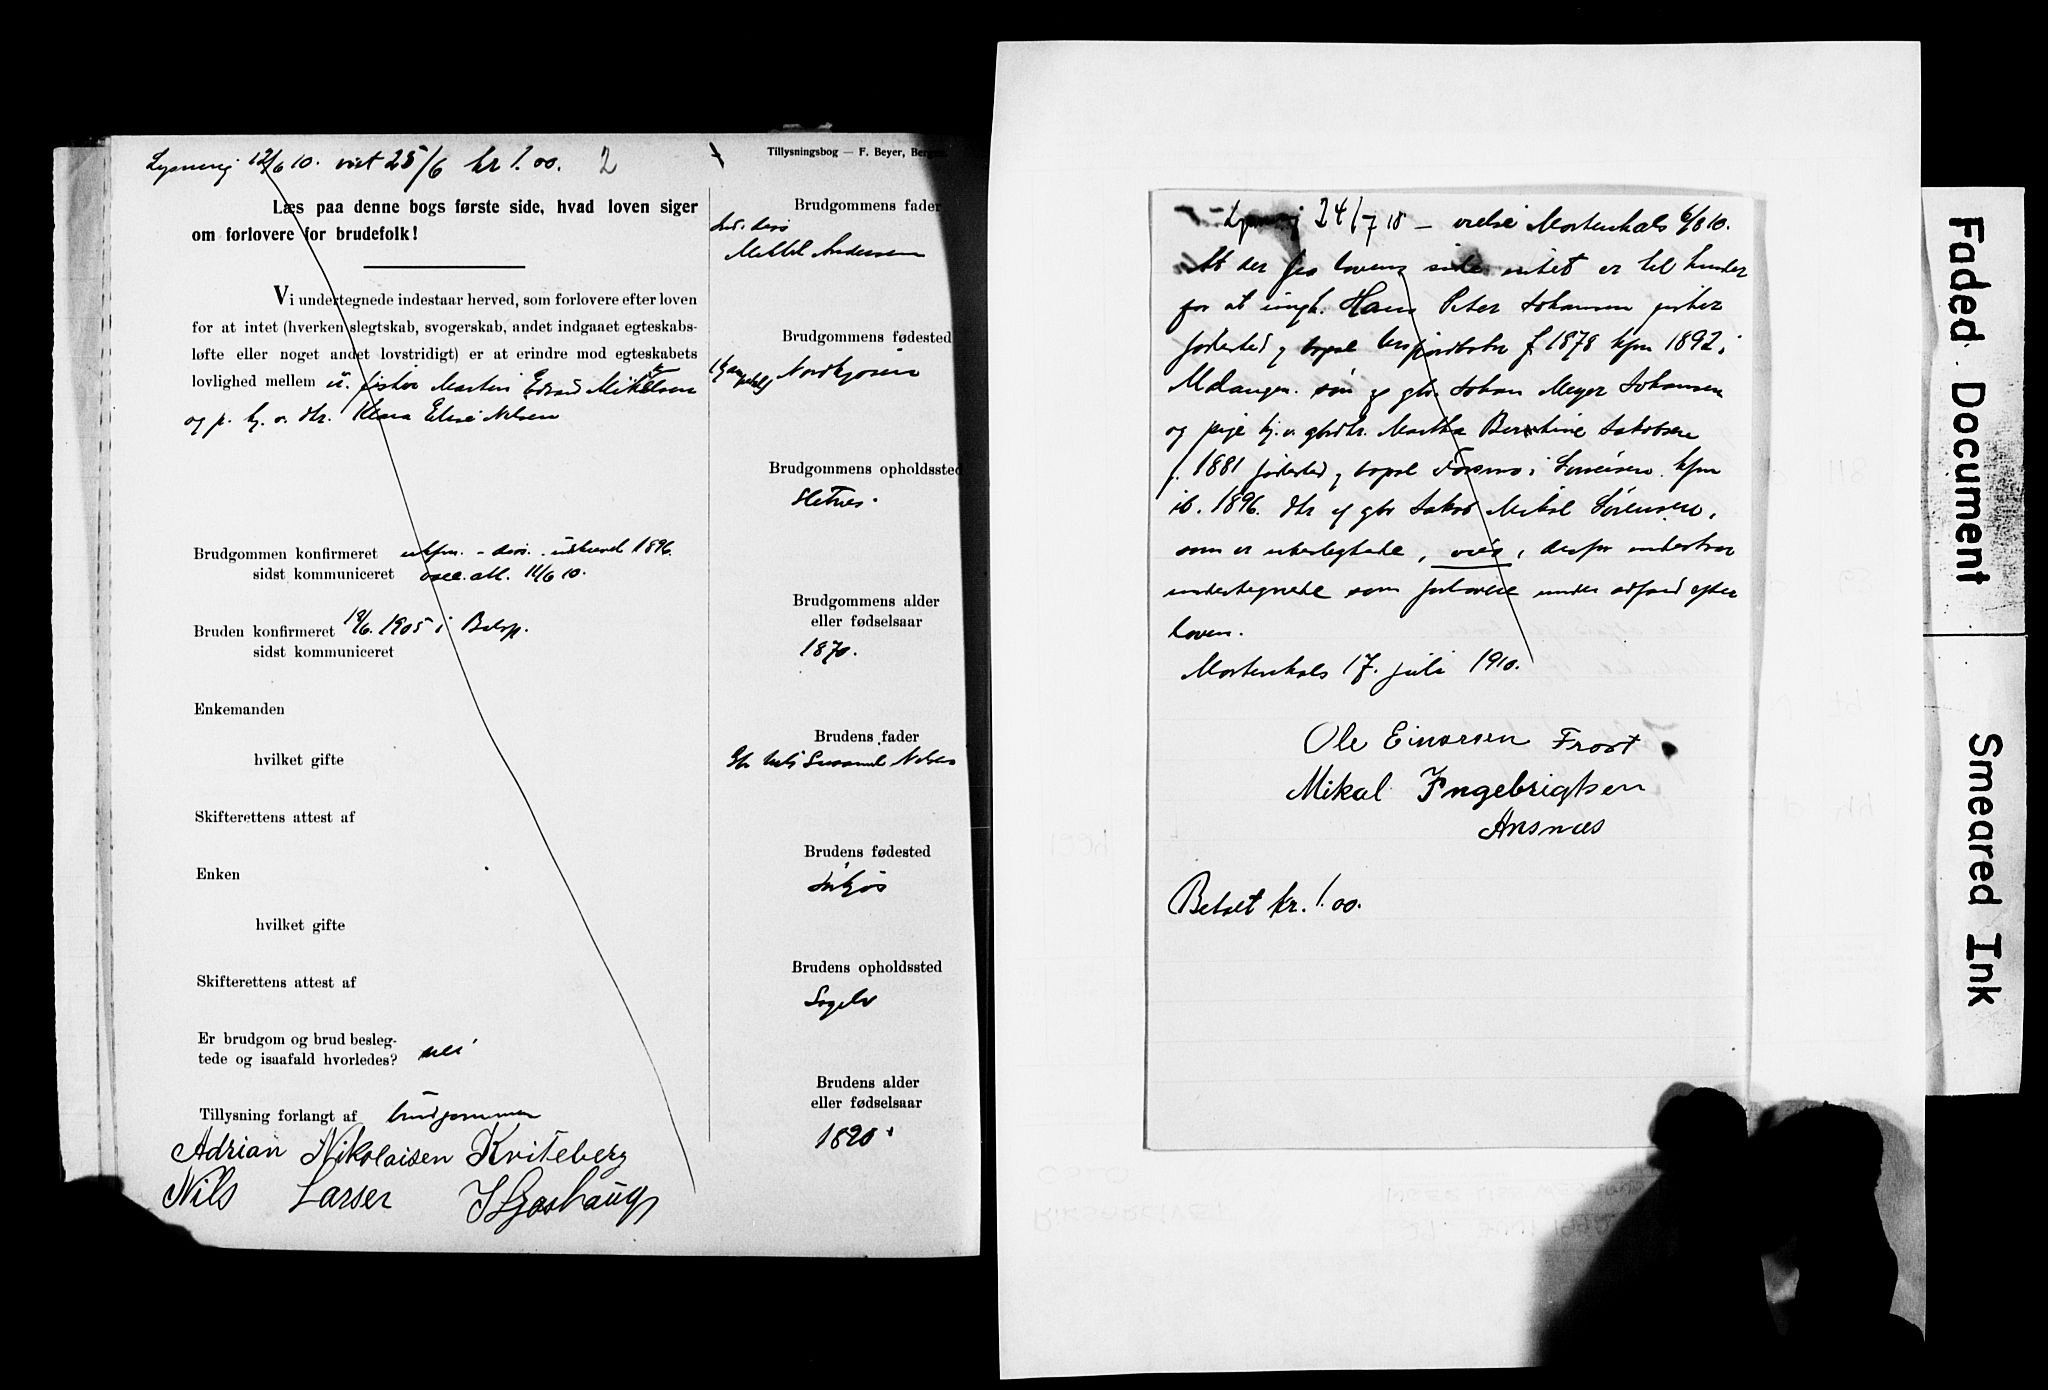 Lysning 12/6 10. viet 25/6 kr 1.00. 2
Tillysningsbog — F. Beyer, Bergen.
Læs paa denne bogs første side, hvad loven siger
om forlovere for brudefolk!
Vi undertegnede indestaar herved, som forlovere efter loven
for at intet (hverken slegtskab, svogerskab, andet indgaaet egteskabs-
løfte eller noget andet lovstridigt) er at erindre mod egteskabets
lovlighed mellem u. fisker Martin Edvard Mikkelsen
og p. hj. v. dtr. Elise Nilsen
Brudgommen konfirmeret ukfm. 1896.
sidst kommuniceret 11/6 10.
Bruden konfirmeret 1905 i Balsfj.
sidst kommuniceret
Enkemanden
hvilket gifte
Skifterettens attest af
Enken
hvilket gifte
Skifterettens attest af
Er brudgom og brud besleg-
tede og isaafald hvorledes? nei
Tillysning forlangt af brudgommen
Adrian Nikolaisen Kviteberg
Nils Larsen
Brudgommens fader
Mikkel Andersen
Brudgommens fødested
Nordkjosen
Brudgommens opholdssted
Sletnes.
Brudgommens alder
eller fødselsaar
1870.
Brudens fader
Nilsen
Brudens fødested
Brudens opholdssted
Sagelv
Brudens alder
eller fødselsaar
1890
Lysning 24/7 10 – vielse Mortenhals 6/8 10.
At der fra lovens side intet er til hinder
for at ungk. Hans Peter Johansen fisker
fødested og bopæl f. 1878 kfm 1892 i
Malangen. søn af gbr. Johan Meyer Johansen
og pige hj. v. gbrdtr. Martha Berntine Jakobsen
f. 1881 fødested og bopæl i kfm
ib. 1896. dtr af gbr Jakob Mikal Sørensen,
som er ubeslegtede, vies, derfor indestaar
undertegnede som forlovere under ansvar efter
loven.
Mortenhals 17. juli 1910.
Ole Einarsen Frost
Mikal Ingebrigtsen
Ansnæs
Betalt kr. 1.00.
Faded Document
Smeared Ink